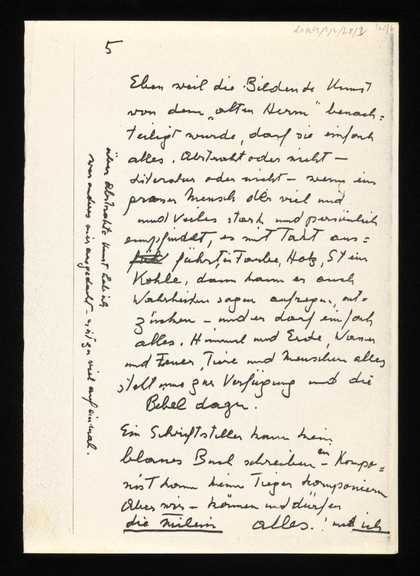 5
Eben weil die Bildende Kunst
von dem „alten Herrn" benach=
teiligt wurde, darf sie einfach
alles. Abstrakt oder nicht –
Literatur oder nicht – wenn ein
grosser Mensch der viel und
und Vieles stark und persönlich
empfindet, es mit Takt aus=
führt, in Farbe, Holz, Stein
Kohle, dann kann er auch
Wahrheiten sagen aufregen, ent=
zücken – und er darf einfach
alles. Himmel und Erde, Wasser
und Feuer, Tiere und Menschen alles
steht uns zur Verfügung und die
Bibel dazu.
Ein Schriftsteller kann kein
blaues Buch schreiben – ein Kompo=
nist kann keinen Tieger komponieren
Aber wir – können und dürfen
die Malerei alles. und ich
über Abstrakte Kunst hab ich
was anderes mir ausgedacht – nicht zu viel auf einmal.